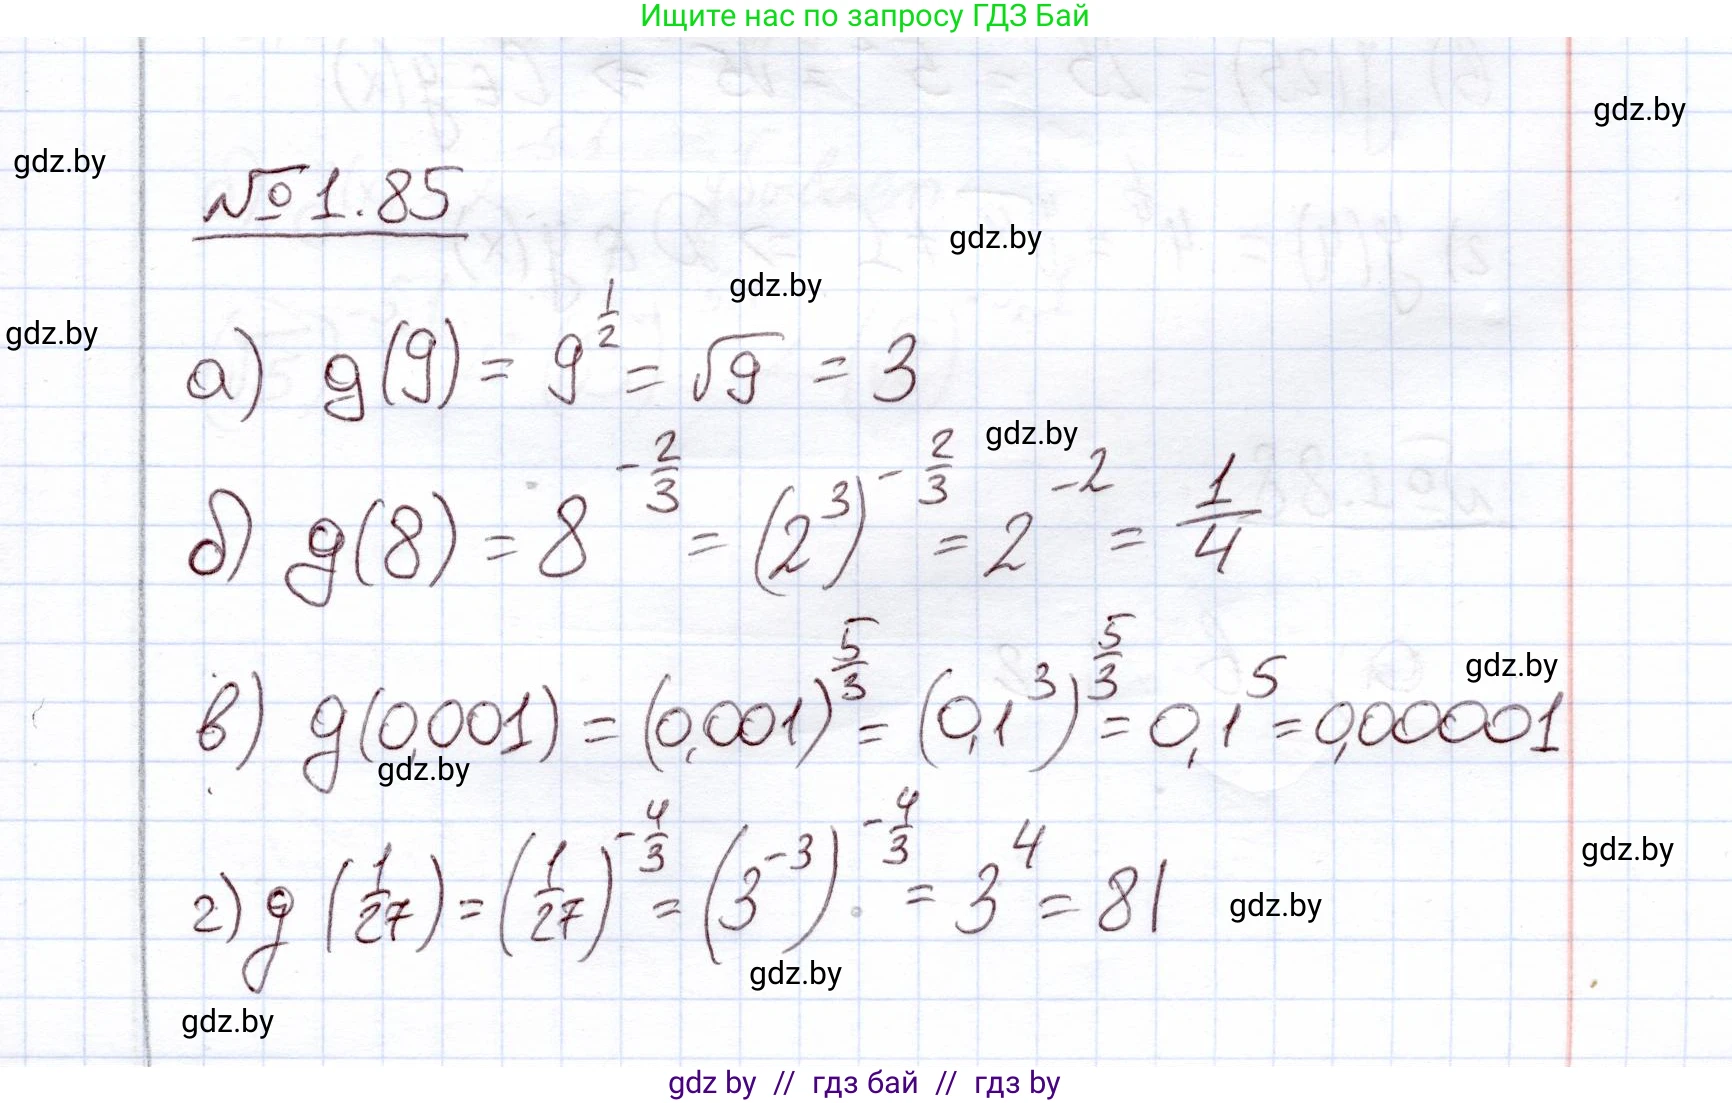 Ищите нас по запросу ГДЗ Бай
gdz.by
gdz.by
№1.85
gdz.by
gdz.by
gdz.by
а) g(9) = 9^{1/2} = √9 = 3
gdz.by
б) g(8) = 8^{-2/3} = (2^3)^{-2/3} = 2^{-2} = 1/4
gdz.by
в) g(0,001) = (0,001)^{5/3} = (0,1^3)^{5/3} = 0,1^5 = 0,00001
gdz.by
г) g(1/27) = (1/27)^{-4/3} = (3^{-3})^{-4/3} = 3^4 = 81
gdz.by
gdz.by
gdz.by
gdz.by
gdz by // гдз бай // гдз by